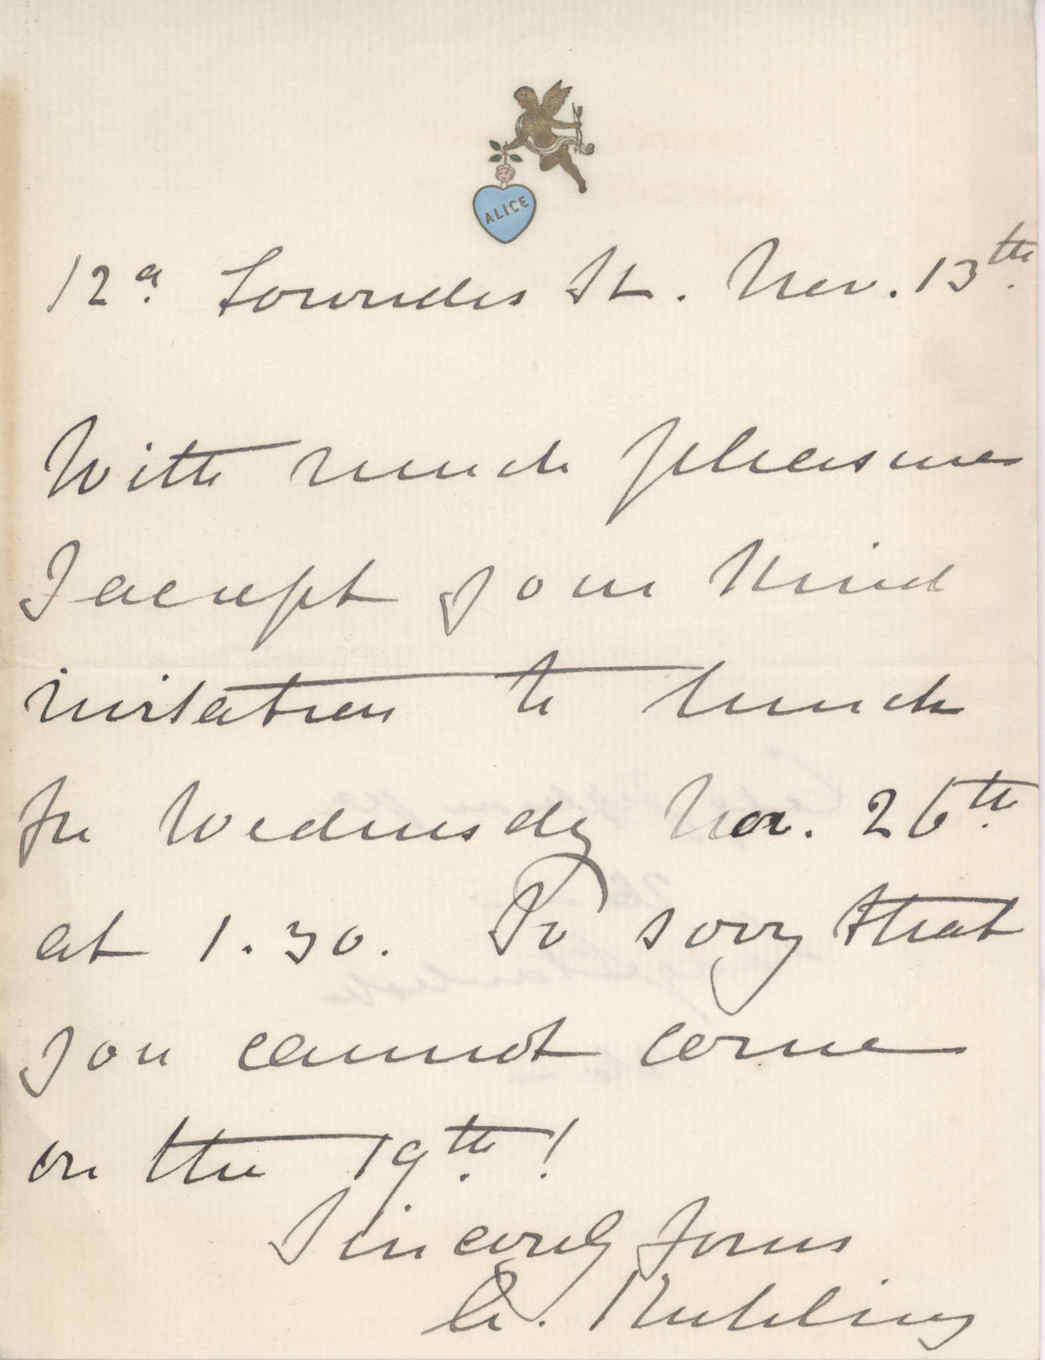 ALICE
12a. Lowndes St. Nov. 13th.
With much pleasure
I accept your kind
invitation to lunch
for Wednesday Nov. 26th.
at 1.30. So sorry that
you cannot come
on the 19th. !
Sincerely Yours
A.